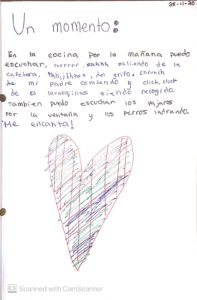 05-11-20
Un momento:
En la cocina por la mañana puedo
escuchar, rorror, shhhh saliendo de la
cafetera, del grifo, chrunch
de mi padre comiendo y click, click
de el lavavajillas siendo recogido.
También puedo escuchar los pájaros
por la ventana y los perros ladrando.
¡Me encanta!
Scanned with CamScanner